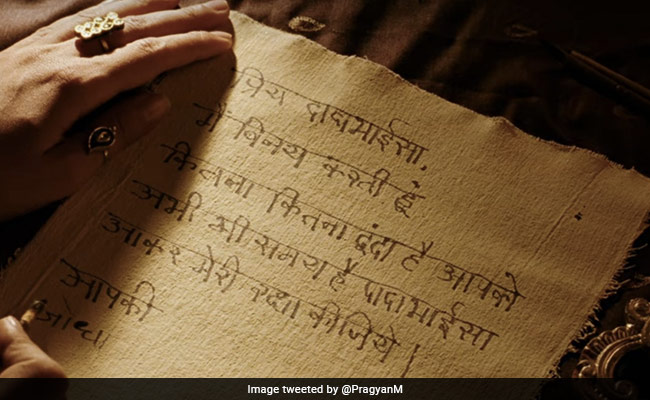 प्रिय दादाभाईसा,
मैं विनय करती हूँ
कितना कितना ढूंढा है आपको
अभी भी समय है दादाभाईसा
आकर मेरी रक्षा कीजिये।
आपकी
जोधा
Image tweeted by @PragyanM